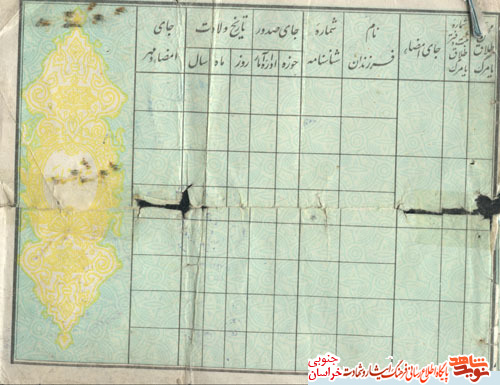 شماره ثبت دفتر طلاق یا مرگ
جای امضاء
نام فرزندان
شماره شناسنامه
جای صدور
حوزه
اداره آمار
تاریخ ولادت
روز
ماه
سال
جای امضاء و مهر
نوید شاهد
پایگاه اطلاع رسانی فرهنگ ایثار و شهادت خراسان جنوبی